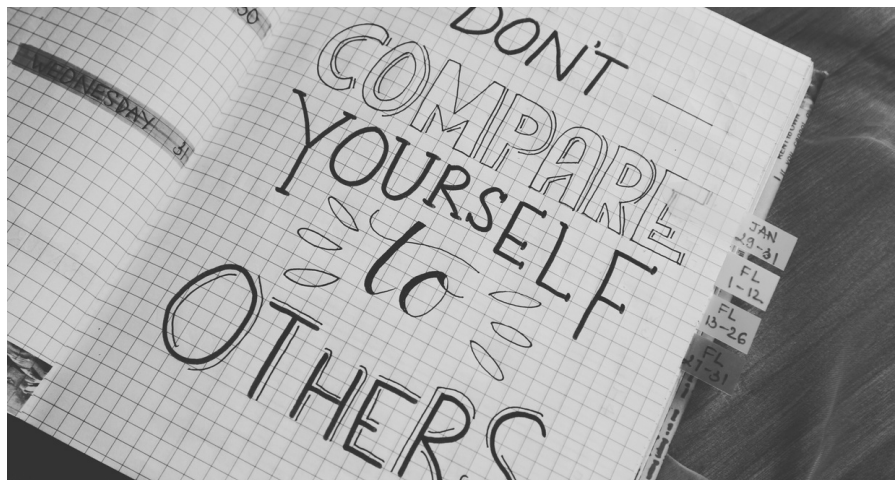 WEDNESDAY 31
DON'T
COMPARE
YOURSELF
to
OTHERS
JAN
29-31
FL
1-12
FL
13-26
FL
27-31